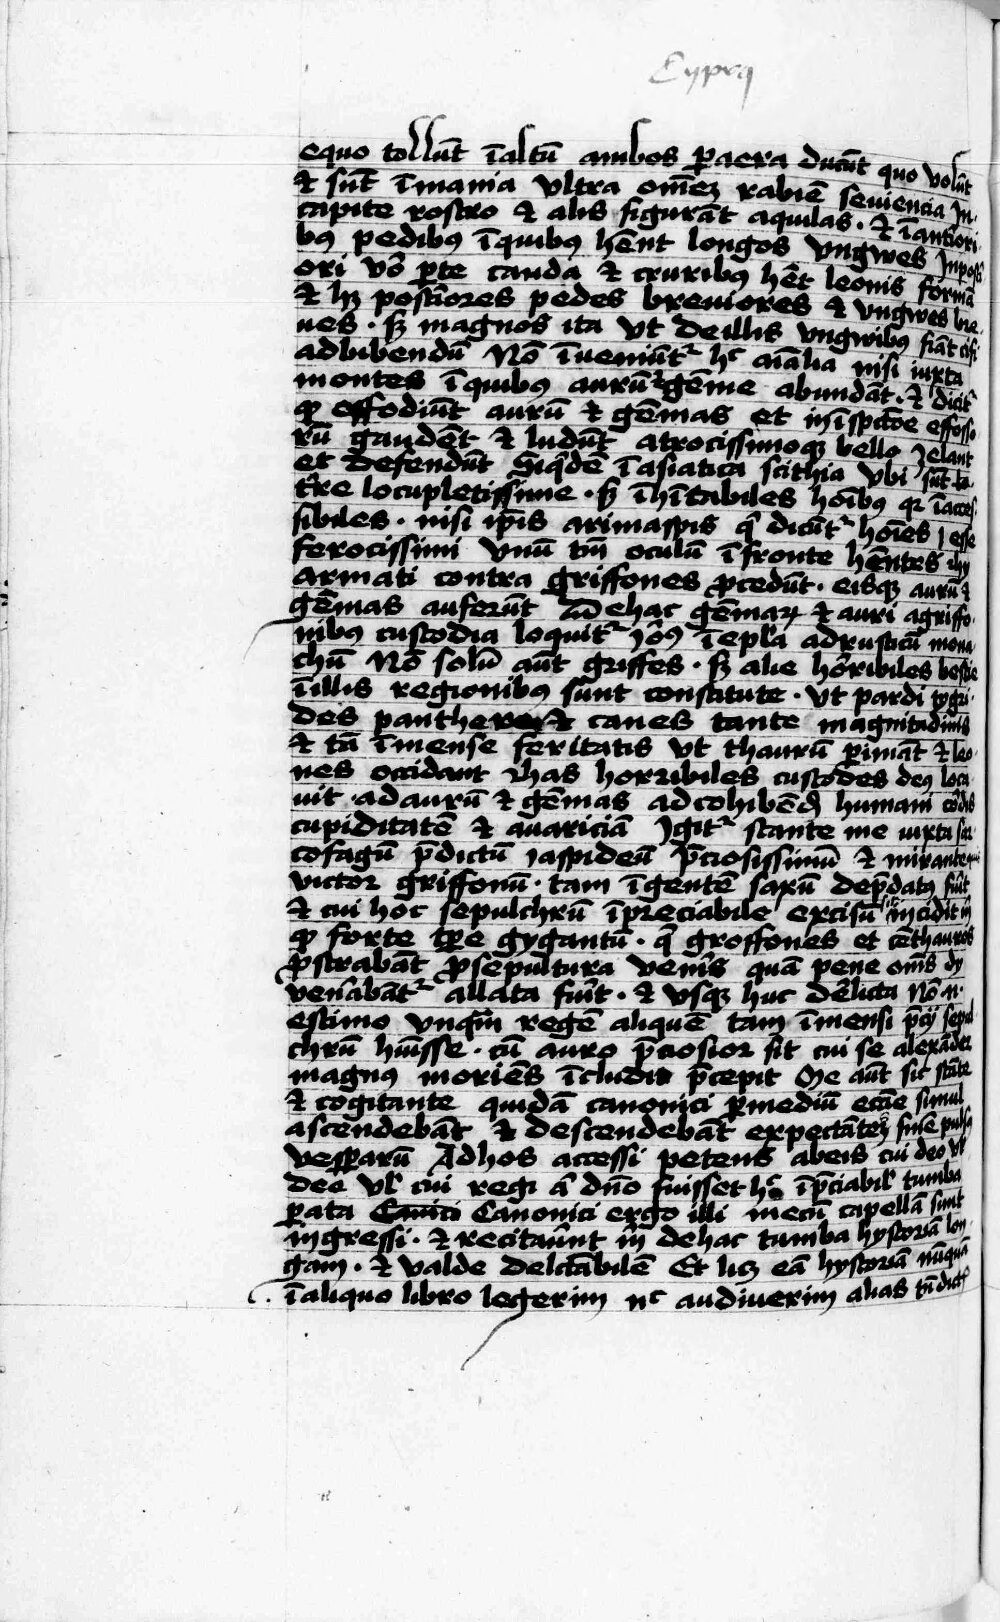 Cypry
equo tollūt ī altū ambos p aera ducūt quo volūt
et sūt īmania ultra omēz rabiē seviencia In
capite rostro et alis figurāt aquilas . et ī anteriori
bus pedibus ī quibus hēnt longos ungwes In post
ori vō pte cauda et cruribus hēt leonis formā
et hz postiores pedes breviores et ungwes bre
ves . sz magnos ita ut de illis ungwibus fiāt cifi
ad bibendū Nō īveniūtr hc aīalia nisi iuxta
montes ī quibus aurū et gēme abundāt . et dicitr
qp effodiūt aurū et gēmas et in īspectōe effosso
rū gaudēt et ludūt atrocissimoqz bello zelant
et defendūt Siqdē ī asiatica scithia ubi sūt ta
tre locupletissime . sz ī hītabiles hoībus qr ī acces
sibiles . nisi ipīs arimaspis q dicūtr hoīes esse
ferocissimi unū tm oculū ī fronte hēntes hy
armati contra griffones pcedūt . eisqz aurū et
gēmas auferūt De hac gēmarum et auri a griffo
nibus custodia loquitr ī epla ad rusticū mona
chū Nō solū aūt griffes . sz alie horribiles bestie
ī illis regionibus sunt constitute . ut pardi tygri
des panthere et canes tante magnitudinis
et tā īmense feritatis ut thaurū pimāt et leo
nes occidant et has horribiles custodes deus loca
vit . ad aurū et gēmas ad cohibēdā humani cordis
cupiditatē et avariciā Igitr stante me iuxta sar
cofagū pdictū iaspideū pciosissimū et mirante quis
victor griffonū . tam īgentē saxū depdatus fuit
et cui hoc sepulchrū īpreciabile excisū sit incidit m
qp forte tpe gygantū . q groffones et cēthauros
pstrabāt p sepultura venis quā pene oms dy
venabātr allata fuit . et usqz huc derlicta Nō n
estimo unqm regē aliquē tam īmensi pcy sepul
chrū huisse . cū auro pciosior sit cui se alexāder
magnus moriēs īcludi pcepit Me aūt sic stāte
et cogitante quidā canonici p mediū eccie simul
ascendebāt et descendebāt expectātes finē pulsus
vesparū Ad hos accessi petens ab eis cui deo vl
dee vl cui regi a dno fuisset hc īpciabil tumba
pata Canonici ergo illi mecū capellā sunt
ingressi . et recitaverūt m de hac tumba hystoriā lon
gam . et valde delectabilē Et licz eā hystoriā nūquā
ī aliquo libro legerim nc audiverim alias tn dict